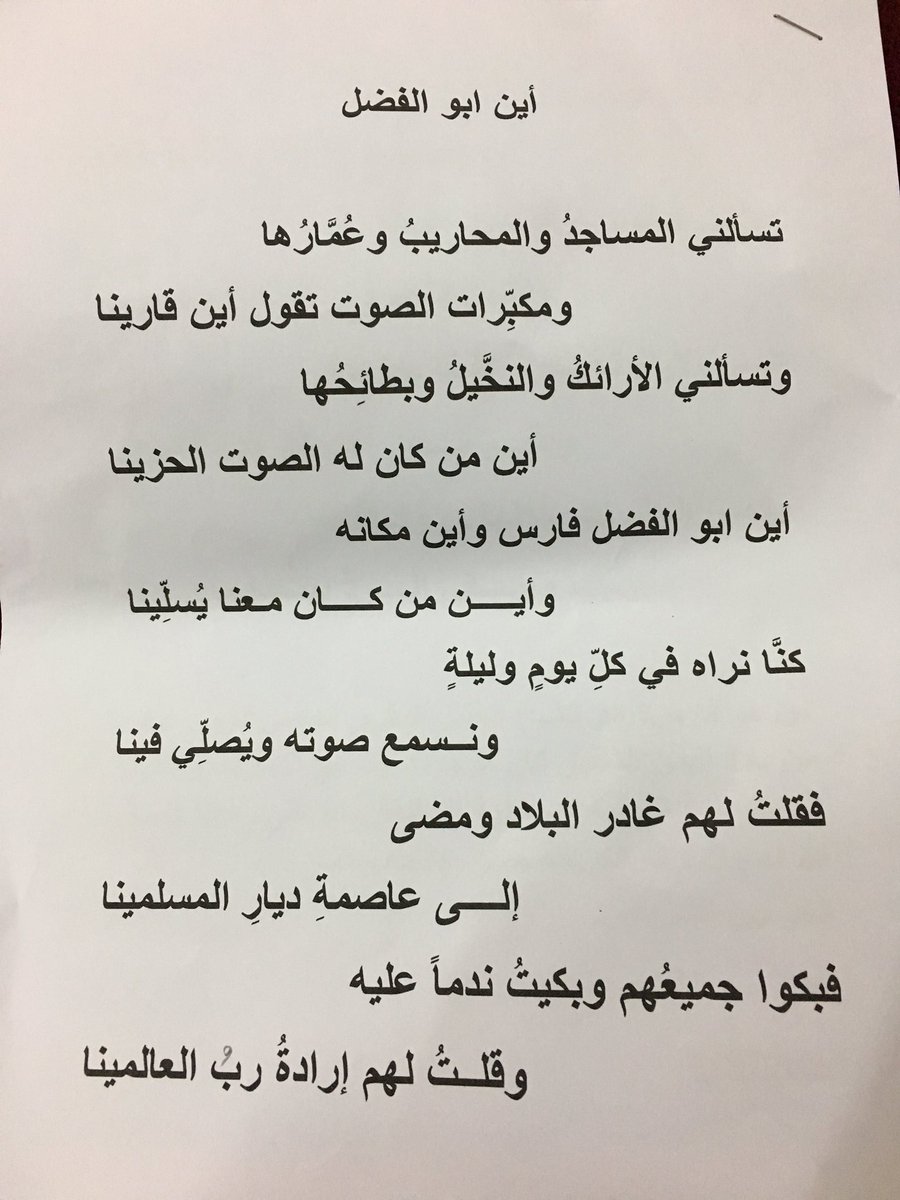 أين ابو الفضل
تسألني المساجدُ والمحاريبُ وعُمَّارُها
ومكبِّرات الصوت تقول أين قارينا
وتسألني الأرائكُ والنخَّيلُ وبطائِحُها
أين من كان له الصوت الحزينا
أين ابو الفضل فارس وأين مكانه
وأيـــن من كـــان معنا يُسلِّينا
كنَّا نراه في كلِّ يومٍ وليلةٍ
ونـسمع صوته ويُصلِّي فينا
فقلتُ لهم غادر البلاد ومضى
إلـــى عاصمةِ ديارِ المسلمينا
فبكوا جميعُهم وبكيتُ ندماً عليه
وقلــتُ لهم إرادةُ ربُ العالمينا